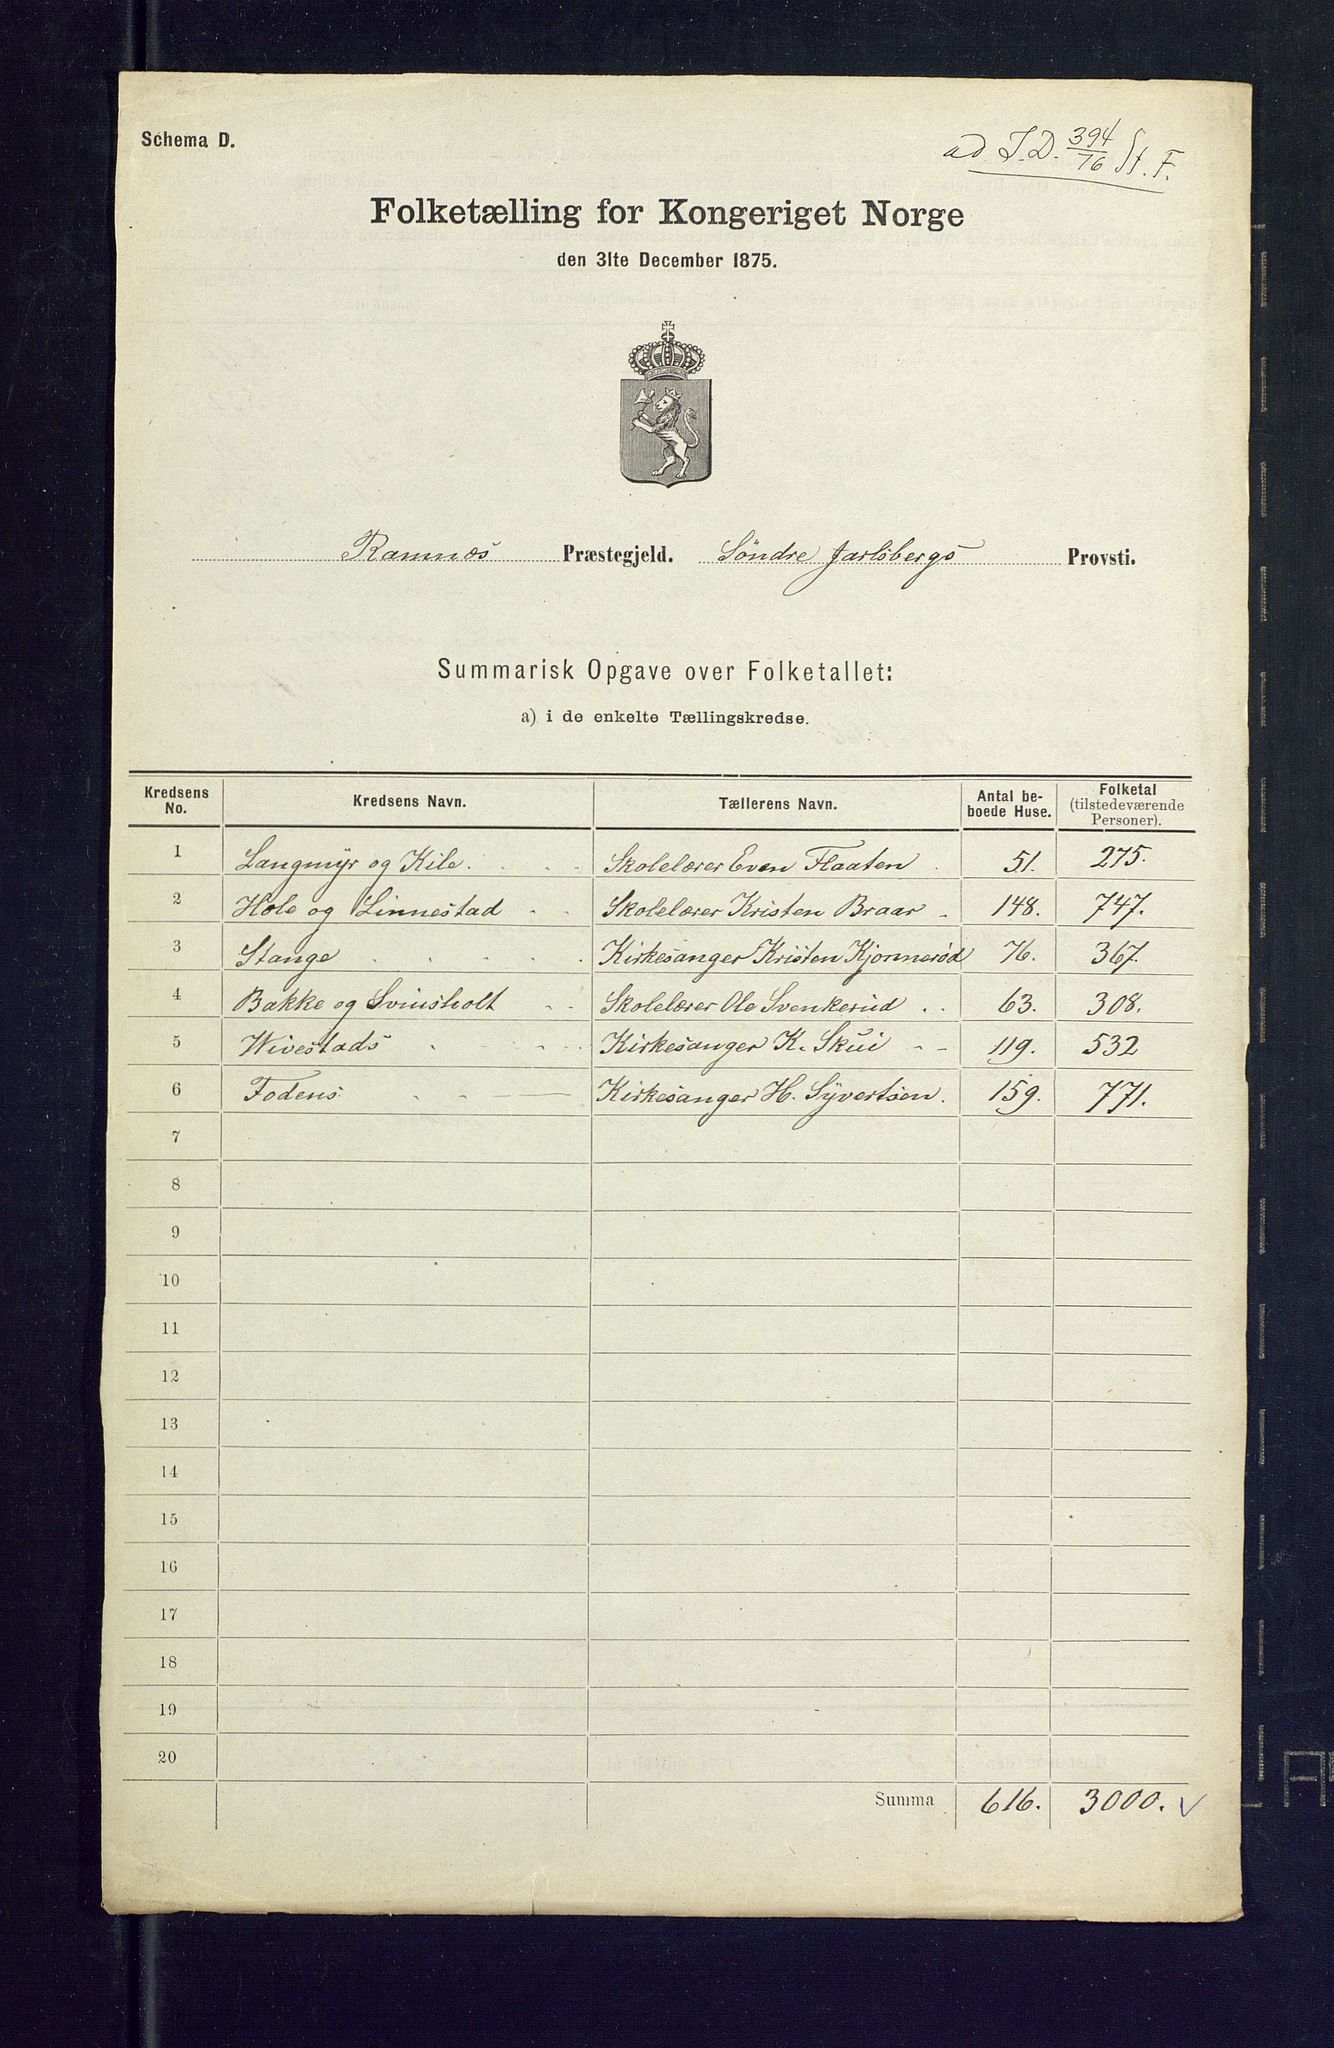 Schema D.
ad J.D. 394/76 St. F.
Folketælling for Kongeriget Norge
den 31te December 1875.
Ramnæs Præstegjeld. Söndre Jarlsbergs Provsti.
Summarisk Opgave over Folketallet:
a) i de enkelte Tællingskredse.
Kredsens No. Kredsens Navn. Tællerens Navn. Antal beboede Huse. Folketal (tilstedeværende Personer).
1 Langmyr og Kile. Skolelærer Even Flaaten 51. 275.
2 Hole og Linnestad Skolelærer Kristen Braar 148. 747.
3 Stange Kirkesanger Kristen Kjonnerød 76. 367.
4 Bakke og Svinsholt Skolelærer Ole Svenkerud 63. 308.
5 Wivestads Kirkesanger K. Skui 119. 532
6 Fodens Kirkesanger H. Syvertsen. 159. 771.
7
8
9
10
11
12
13
14
15
16
17
18
19
20
Summa 616. 3000. ✓